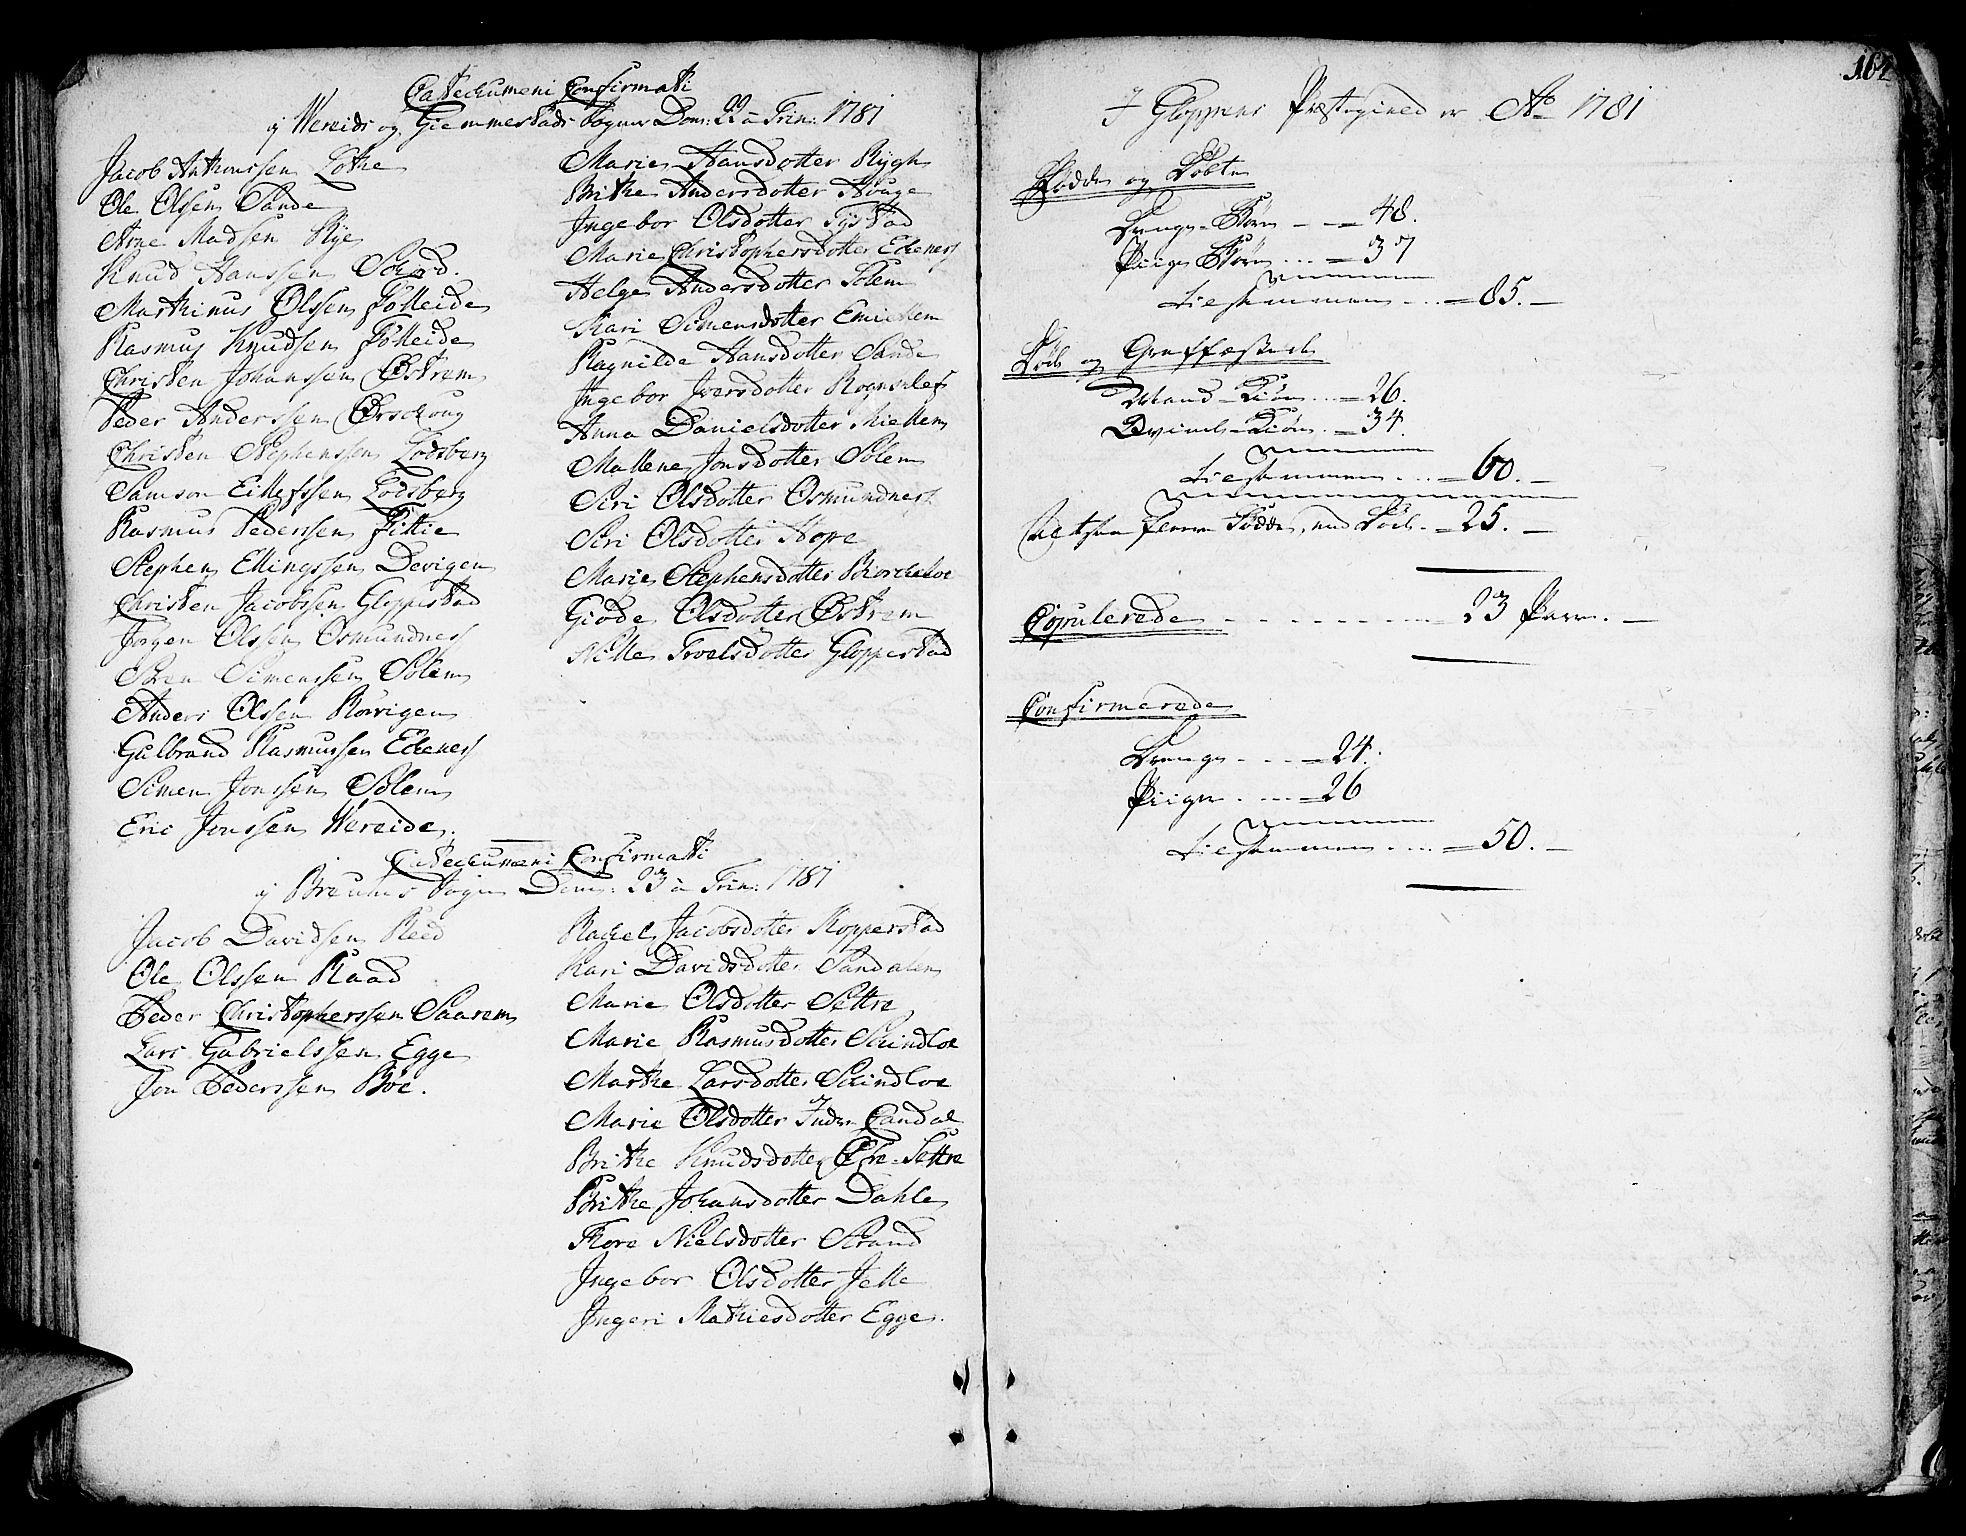 Catechumeni Confirmati
i Vereids og Giemmestads Sogner Dom: 22 a Trin: 1781
Jacob Anthonssen Lothe
Ole Olssen Sande
Arne Madsen Rye
Knud Hanssen Schard.
Marthinus Olssen Følleide
Rasmus Knudsen Følleide
Christen Johanssen Østrem
Peder Anderssen Ørschoug
Christen Stephenssen Lodsberg
Samson Eilefssen Lodsberg
Rasmus Pederssen Fittie
Stephen Ellingssen Devigen
Christen Jacobssen Gloppestad
Jørgen Olssen Osmundness
Søren Simenssen Solem
Anders Olssen Rørvigen
Gulbrand Rasmussen Eckeness
Simen Jonssen Solem
Eric Jonssen Wereide.
Marie Hansdotter Rygh
Brithe Andersdotter Houge
Ingebor Olsdotter Tystad
Marie Christophersdotter Eckeness
Helge Andersdotter Solem
Kari Simensdotter Emichem
Ragnilde Hansdotter Sande
Ingebor Iversdotter Rognslef
Anna Danielsdotter Miellem
Mallene Jonsdotter Solem
Siri Olsdotter Osmundness
Siri Olsdotter Hope
Marie Stephensdotter Biorcheloe
Giøde Olsdotter Østrem
Nille Troelsdotter Gloppestad
Catechumeni Confirmati
i Breums Sogn Dom: 23 a Trin: 1781
Jacob Davidsen Reed
Ole Olssen Raad
Peder Christopherssen Saarem
Lars Gabrielssen Egge
Jon Pederssen Bøe.
Rachel Jacobsdotter Kopperstad
Kari Davidsdotter Sandalen
Marie Olsdotter Settre
Marie Rasmusdotter Skindloe
Marthe Larsdotter Skindloe
Marie Olsdotter Indre Candal
Brithe Knudsdotter Øfre-Settre
Brithe Johansdotter Dahle
Thore Nielsdotter Strand
Ingebor Olsdotter Jelle
Ingeri Mathiesdotter Egge.
164
I Gloppens Præstegield er Ao 1781
Fødde og Døbte
Drenge-Børn - - = 48.
Piige Børn ... = 37
Tilsammen ... = 85. -
Døde og Graffæstede
Mand-Kiøn ... = 26.
Qvind-Kiøn . = 34.
Tilsammen ... = 60. -
Altsaa fleere Fødde, end Døde. = 25. -
Copulerede - - - - - - - - = 23 Par. -
Confirmerede
Drenge - ... = 24.
Piiger. ... = 26
Tilsammen .... = 50. -